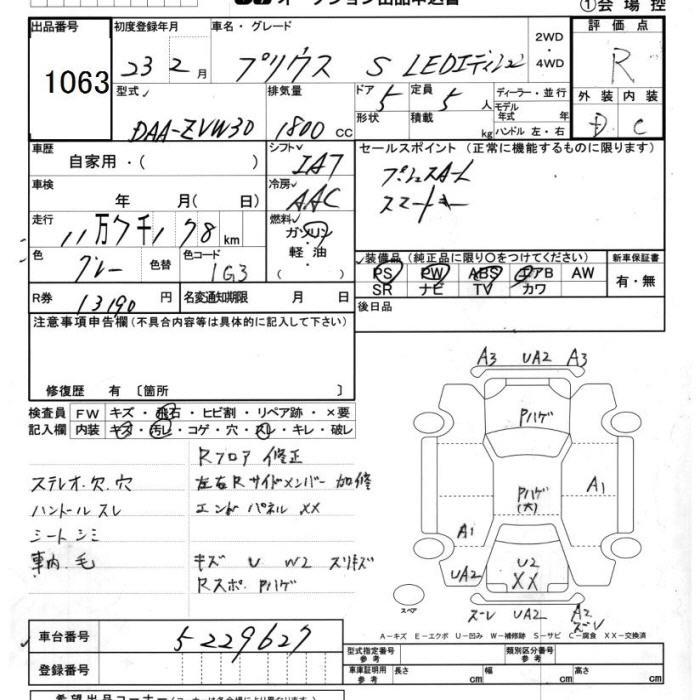 オークション出品申込書
①会場控
出品番号 初度登録年月 車名・グレード 評価点
1063 23 2月 プリウス S LEDエディション 2WD・4WD R
型式 排気量 ドア 定員 ディーラー・並行 外装 内装
DAA-ZVW30 1800 CC 5 5 人 モデル年式 年 D C
形状 積載 kg ハンドル 左・右
車歴 シフト セールスポイント(正常に機能するものに限ります)
自家用・( ) IAT プッシュスタート
車検 冷房 スマートキー
年 月(日) AAC
走行 燃料
11万7千178 km ガソリン・軽油・( )
色 色替 色コード 装備品(純正品に限り○をつけてください) 新車保証書
グレー 1G3 PS PW ABS エアB AW 有・無
SR ナビ TV カワ
R券 13190円 名変通知期限 月 日 後日品
注意事項申告欄(不具合内容等は具体的に記入して下さい)
修復歴 有〔箇所 〕
検査員 FW キズ・飛石・ヒビ割・リペア跡・×要
記入欄 内装 キズ・汚レ・コゲ・穴・スレ・キレ・破レ
Rフロア 修正
ステレオ欠.穴 左右Rサイドメンバー 加修
ハンドルスレ エンドパネル XX
シートシミ
車内.毛 キズ U W2 スリキズ
Rスポ.Pハゲ
A3 UA2 A3
Pハゲ
Pハゲ
(大)
A1
A1
UA2 U2
XX
スペア ズーレ UA2 A2
ズレ
A-キズ E-エクボ U-凹み W-補修跡 S-サビ C-腐食 XX-交換済
車台番号 5229627 型式指定番号 参考 類別区分番号 参考
登録番号 車庫証明用 参考 長さ cm 幅 cm 高さ cm
希望出品コーナー